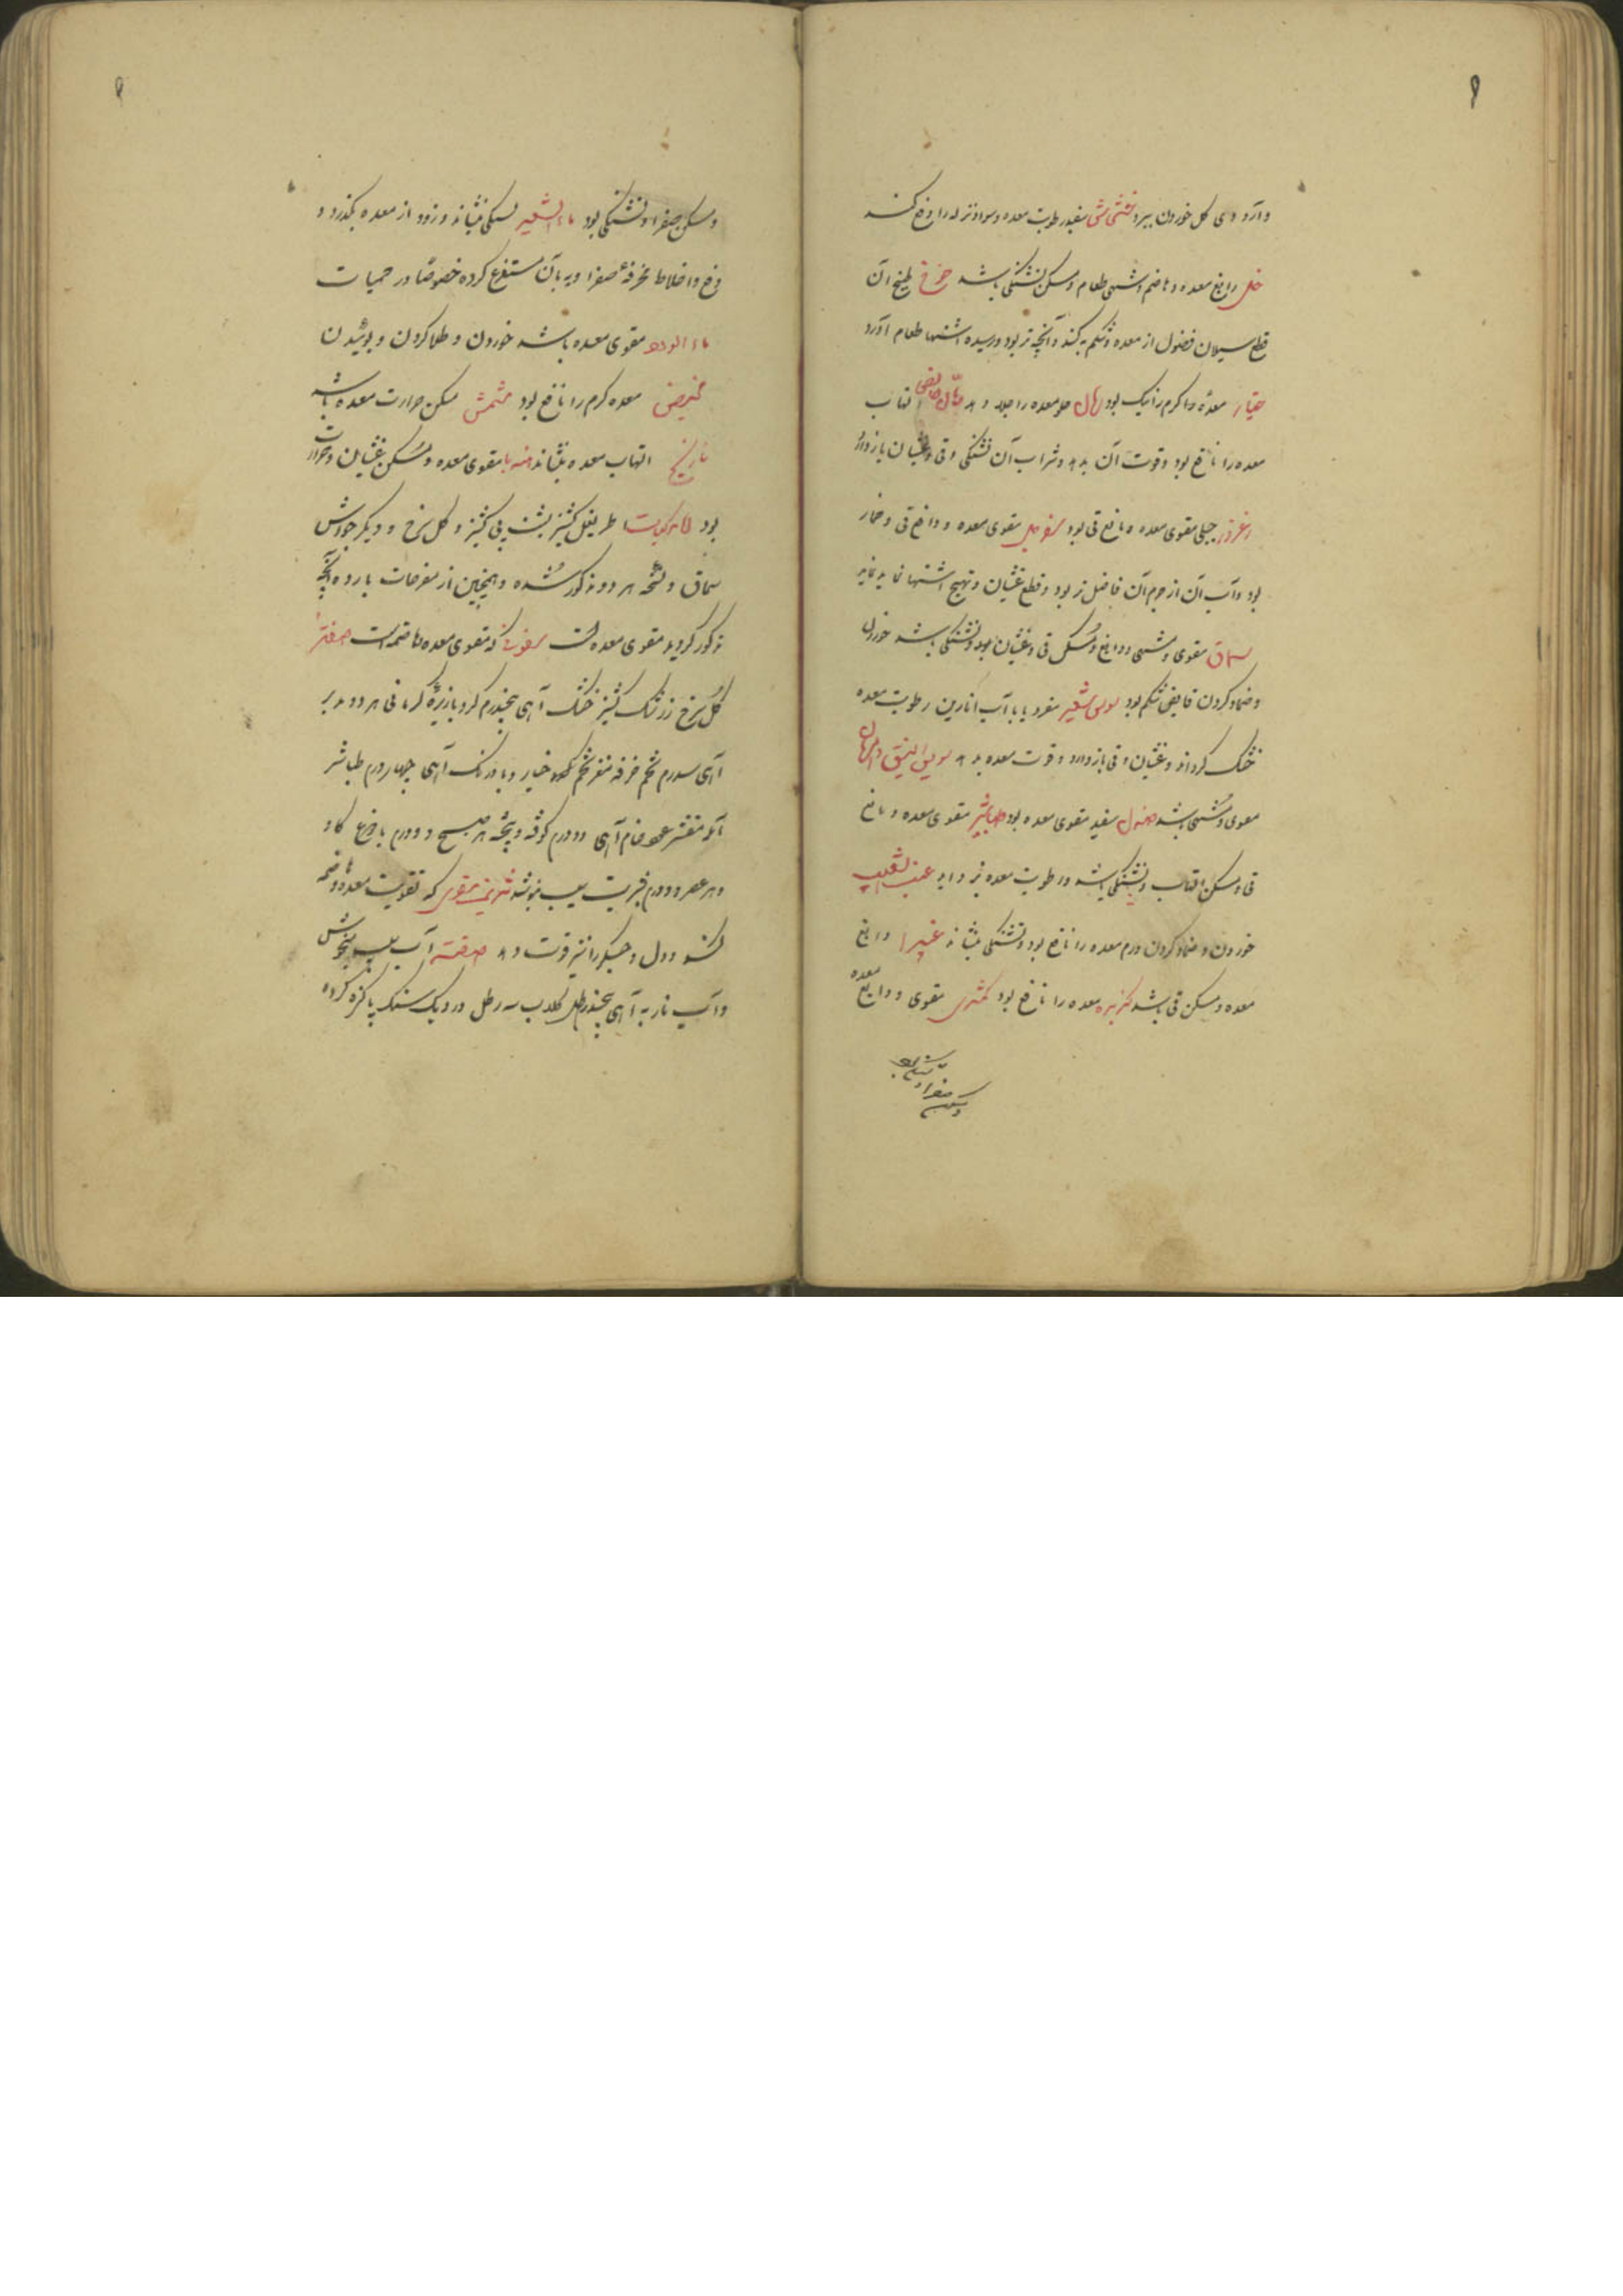 و آرزوی گل خوردن ببرد خشخاش سفید رطوبت معده و مواد نزله را دفع کند
خل دابغ معده و هاضم و مشهی طعام و مسکن تشنگی باشد خوخ طبیخ آن
قطع سیلان فضول از معده و شکم بکند و آنچه تر بود و رسیده اشتها طعام آورد
خیار معدهٔ گرم را نیک بود رمان حلو معده را جلا دهد رمان حامض التهاب
معده را نافع بود و قوت آن بدهد و شراب آن تشنگی و قی و غثیان باز دارد
زعرور جبلی مقوی معده و مانع قی بود سفرجل مقوی معده و دافع قی و خمار
بود و آب آن از جرم آن فاضل تر بود و قطع غثیان و تهیج اشتها نماید
سماق مقوی و مشهی و دابغ و مسکن قی و غثیان بود و تشنگی باشد خوردن
و ضماد کردن قابض شکم بود سویق شعیر مفرد یا با آب انارین رطوبت معده
خشک گرداند و غثیان و قی باز دارد و قوت معده بدهد سویق النبق و الرمان
مقوی و مشهی باشد صندل سفید مقوی معده بود طباشیر مقوی معده و مانع
قی و مسکن التهاب و تشنگی باشد و رطوبت معده بزداید عنب الثعلب
خوردن و ضماد کردن ورم معده را نافع بود و تشنگی بنشاند غبیرا دابغ
معده و مسکن قی باشد کزبره معده را نافع بود کمثری مقوی و دابغ معده
و مسکن صفرا و تشنگی بود
و مسکن صفرا و تشنگی بود ماء الشعیر تشنگی بنشاند و زود از معده بگذرد و
دفع اخلاط محرقهٔ صفراویه بآن مستفرغ کرده خصوصًا در حمیات
ماء الورد مقوی معده باشد خوردن و طلا کردن و بوئیدن
مخیض معده گرم را نافع بود مشمش مسکن حرارت معده باشد
نارنج التهاب معده بنشاند هندبا مقوی معده و مسکن غثیان و حرارت
بود المرکبات اطریفل کشنیز شربت پی کشنیز و گل سرخ و دیگر جوارش
سماق و نسخه هر دو مذکور شده و همچنین از مفرحات بارده آنچه
مذکور گردید مقوی معده است سفوفی که مقوی معده و هاضمه است صفته
گل سرخ زرشک کشنیز خشک از هر یک پنجدرم گرد بازیرهٔ کرمانی هر دو مدبر
از هر یک سه درم تخم خرفه مغز تخم کدو خیار و بادرنگ از هر یک چهار درم طباشیر
آمله مقشر عود خام از هر یک دو درم کوفته و بیخته هر صبح دو درم با دوغ گاو
و هر عصر دو درم بشربت سیب بنوشند شربتی مقوی که تقویت معده و هاضمه
کند و دل و جگر را نیز قوت دهد صفته آب سیب میخوش
و آب نار به از هر یک پنجرطل گلاب سه رطل در دیگ سنگ پاکیزه کرده